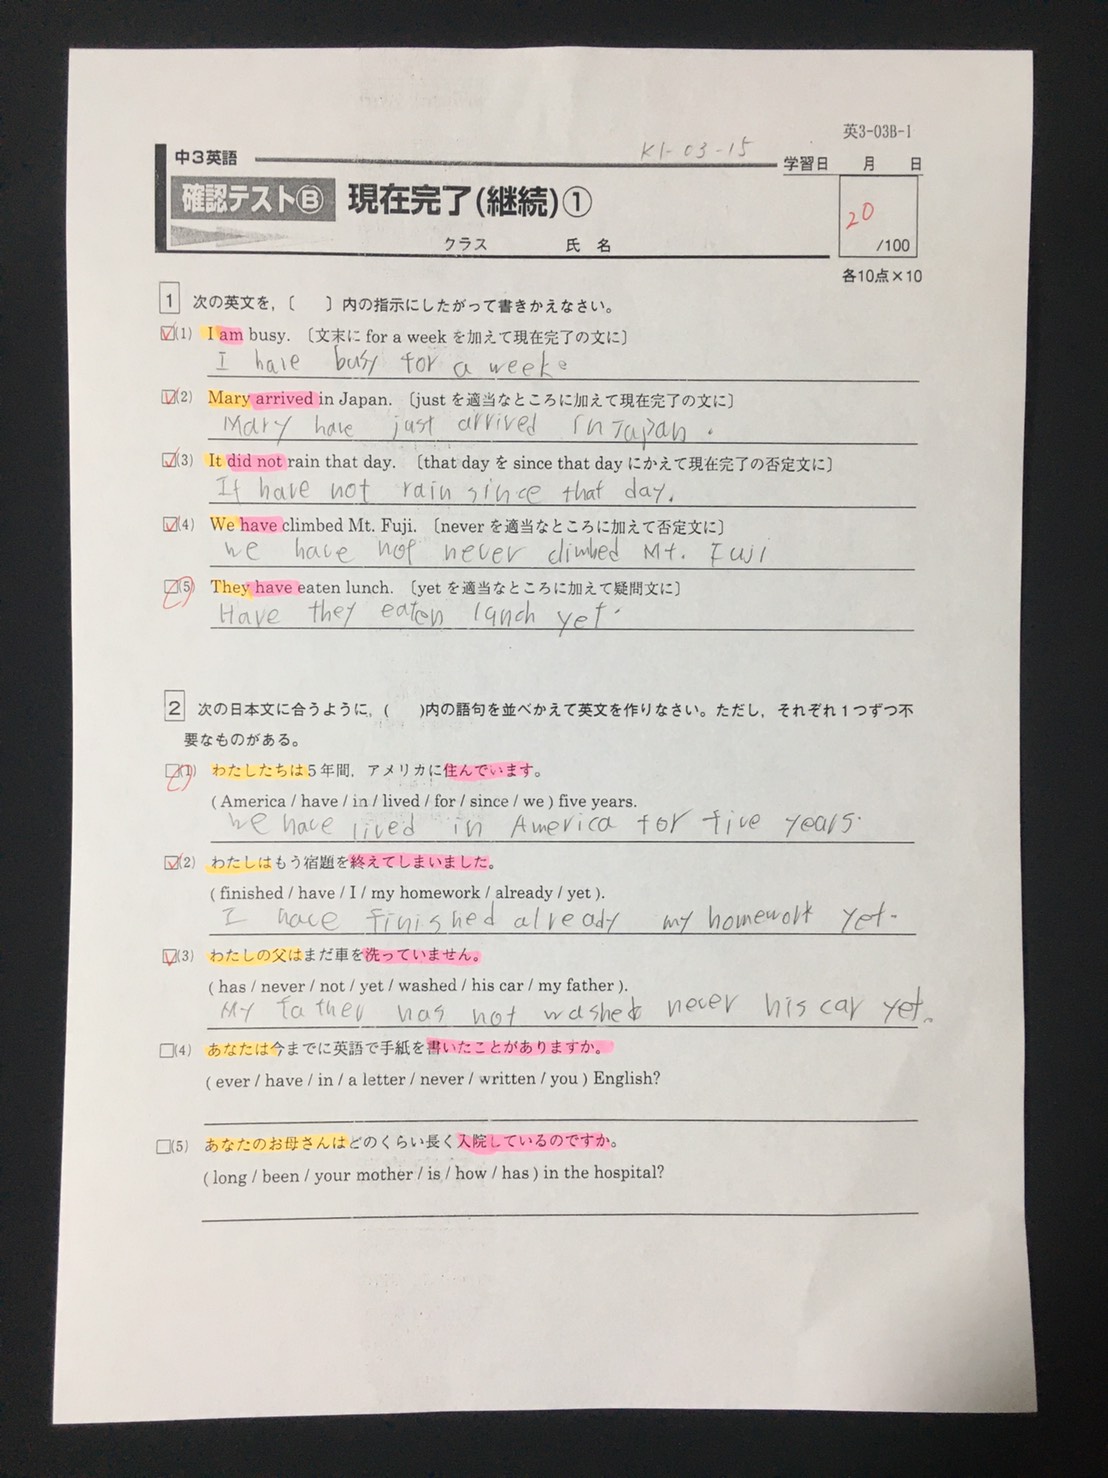 英3-03B-1
K1-03-15
中3英語
学習日 月 日
確認テストⒷ 現在完了(継続)①
20
/100
クラス 氏 名
各10点×10
1 次の英文を,〔 〕内の指示にしたがって書きかえなさい。
(1) I am busy. 〔文末に for a week を加えて現在完了の文に〕
I have busy for a week.
(2) Mary arrived in Japan. 〔just を適当なところに加えて現在完了の文に〕
Mary have just arrived in Japan.
(3) It did not rain that day. 〔that day を since that day にかえて現在完了の否定文に〕
It have not rain since that day.
(4) We have climbed Mt. Fuji. 〔never を適当なところに加えて否定文に〕
We have not never climbed Mt. Fuji
(5) They have eaten lunch. 〔yet を適当なところに加えて疑問文に〕
Have they eaten lunch yet.
2 次の日本文に合うように, ( )内の語句を並べかえて英文を作りなさい。ただし, それぞれ1つずつ不
要なものがある。
(1) わたしたちは5年間, アメリカに住んでいます。
( America / have / in / lived / for / since / we ) five years.
We have lived in America for five years.
(2) わたしはもう宿題を終えてしまいました。
( finished / have / I / my homework / already / yet ).
I have finished already my homework yet.
(3) わたしの父はまだ車を洗っていません。
( has / never / not / yet / washed / his car / my father ).
My father has not washed never his car yet.
(4) あなたは今までに英語で手紙を書いたことがありますか。
( ever / have / in / a letter / never / written / you ) English?
(5) あなたのお母さんはどのくらい長く入院しているのですか。
( long / been / your mother / is / how / has ) in the hospital?